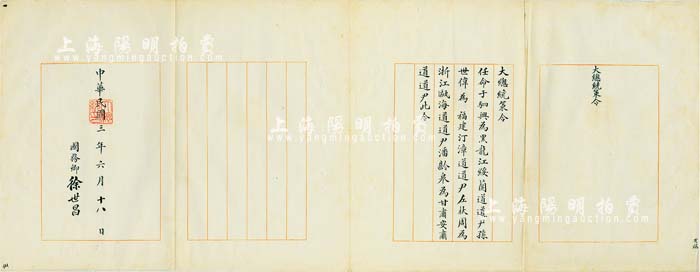 大總統策令
大總統策令
任命于駟興為黑龍江綏蘭道道尹孫
世偉為福建汀漳道道尹左秋周為
浙江甌海道道尹潘齡皋為甘肅安肅
道道尹此令
中華民國三年六月十八日
國務卿徐世昌
上海陽明拍賣
www.yangmingauction.com
上海陽明拍賣
www.yangmingauction.com
上海陽明拍賣
www.yangmingauction.com
上海陽明拍賣
www.yangmingauction.com